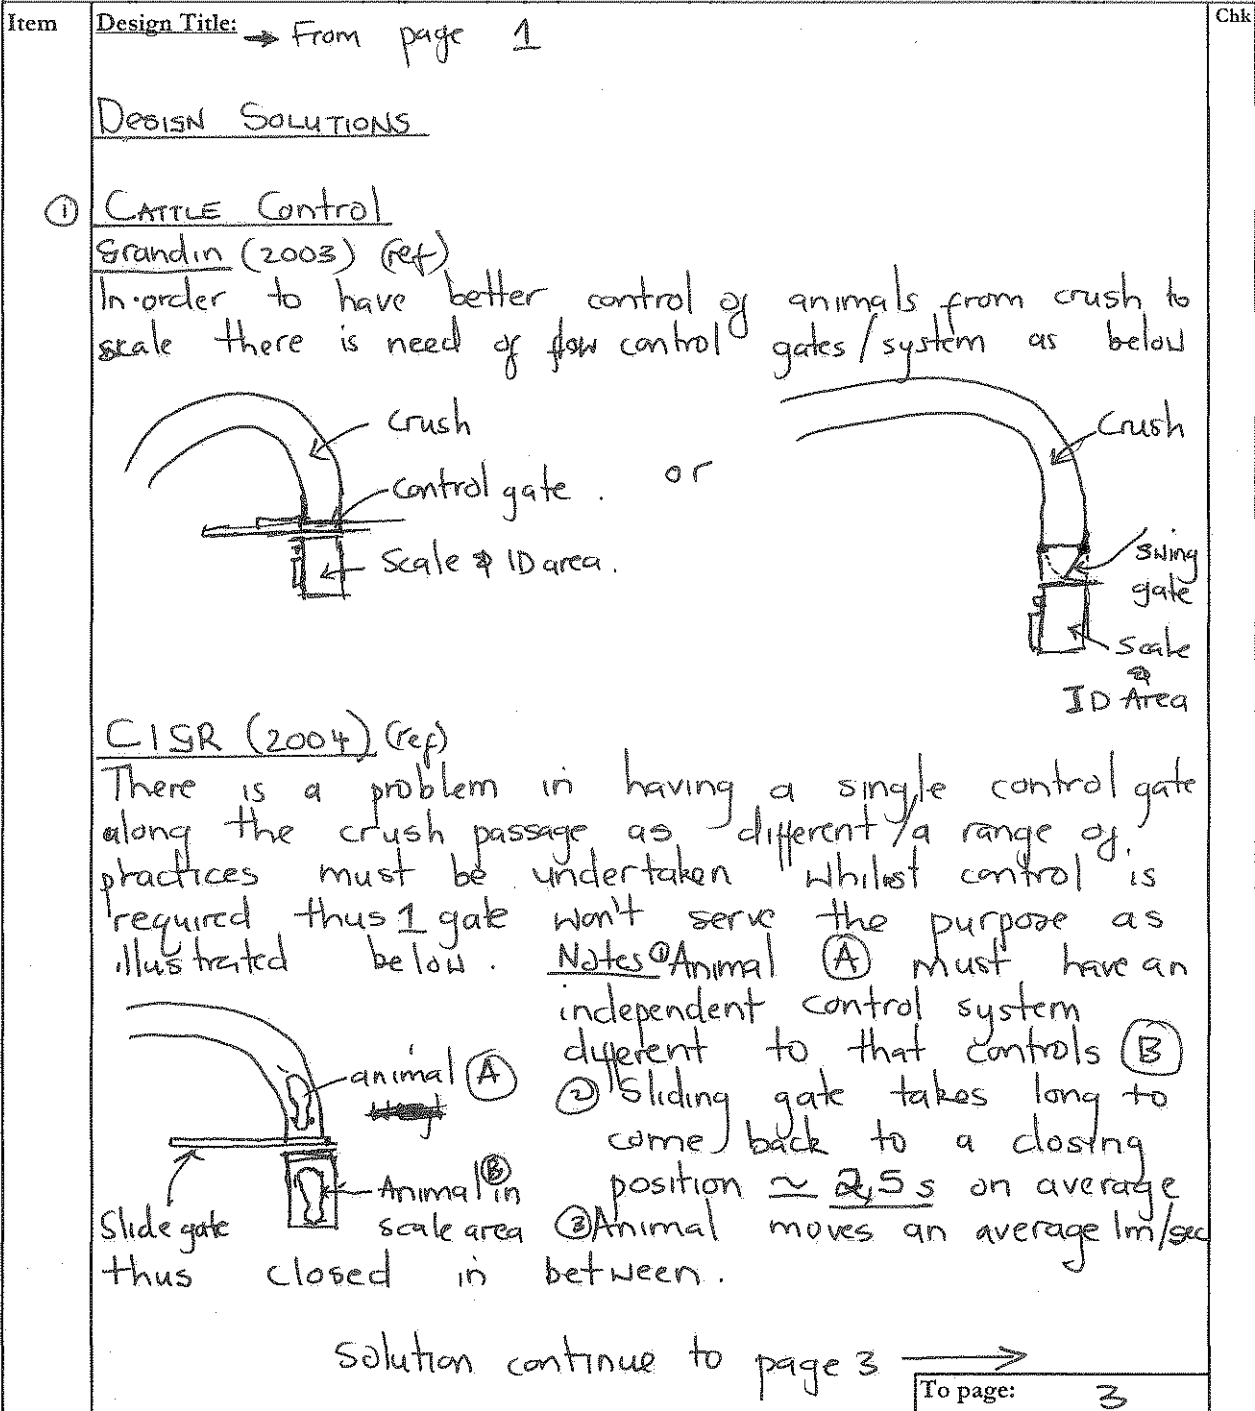 Item Design Title: → From page 1 Chk
DESIGN SOLUTIONS
① CATTLE Control
Grandin (2003) (ref)
In order to have better control of animals from crush to
scale there is need of flow control gates/system as below
Crush
Control gate.
Scale & ID area.
or
Crush
Swing
gate
Scale
&
ID Area
CIGR (2004) (ref)
There is a problem in having a single control gate
along the crush passage as different/a range of
practices must be undertaken whilst control is
required thus 1 gate won't serve the purpose as
illustrated below. Notes ① Animal Ⓐ must have an
independent control system
different to that controls Ⓑ
② Sliding gate takes long to
come back to a closing
position ≃ 2,5 s on average
③ Animal moves an average 1m/sec
thus closed in between.
animal Ⓐ
Animal Ⓑ in
scale area
Slide gate
Solution continue to page 3 →
To page: 3